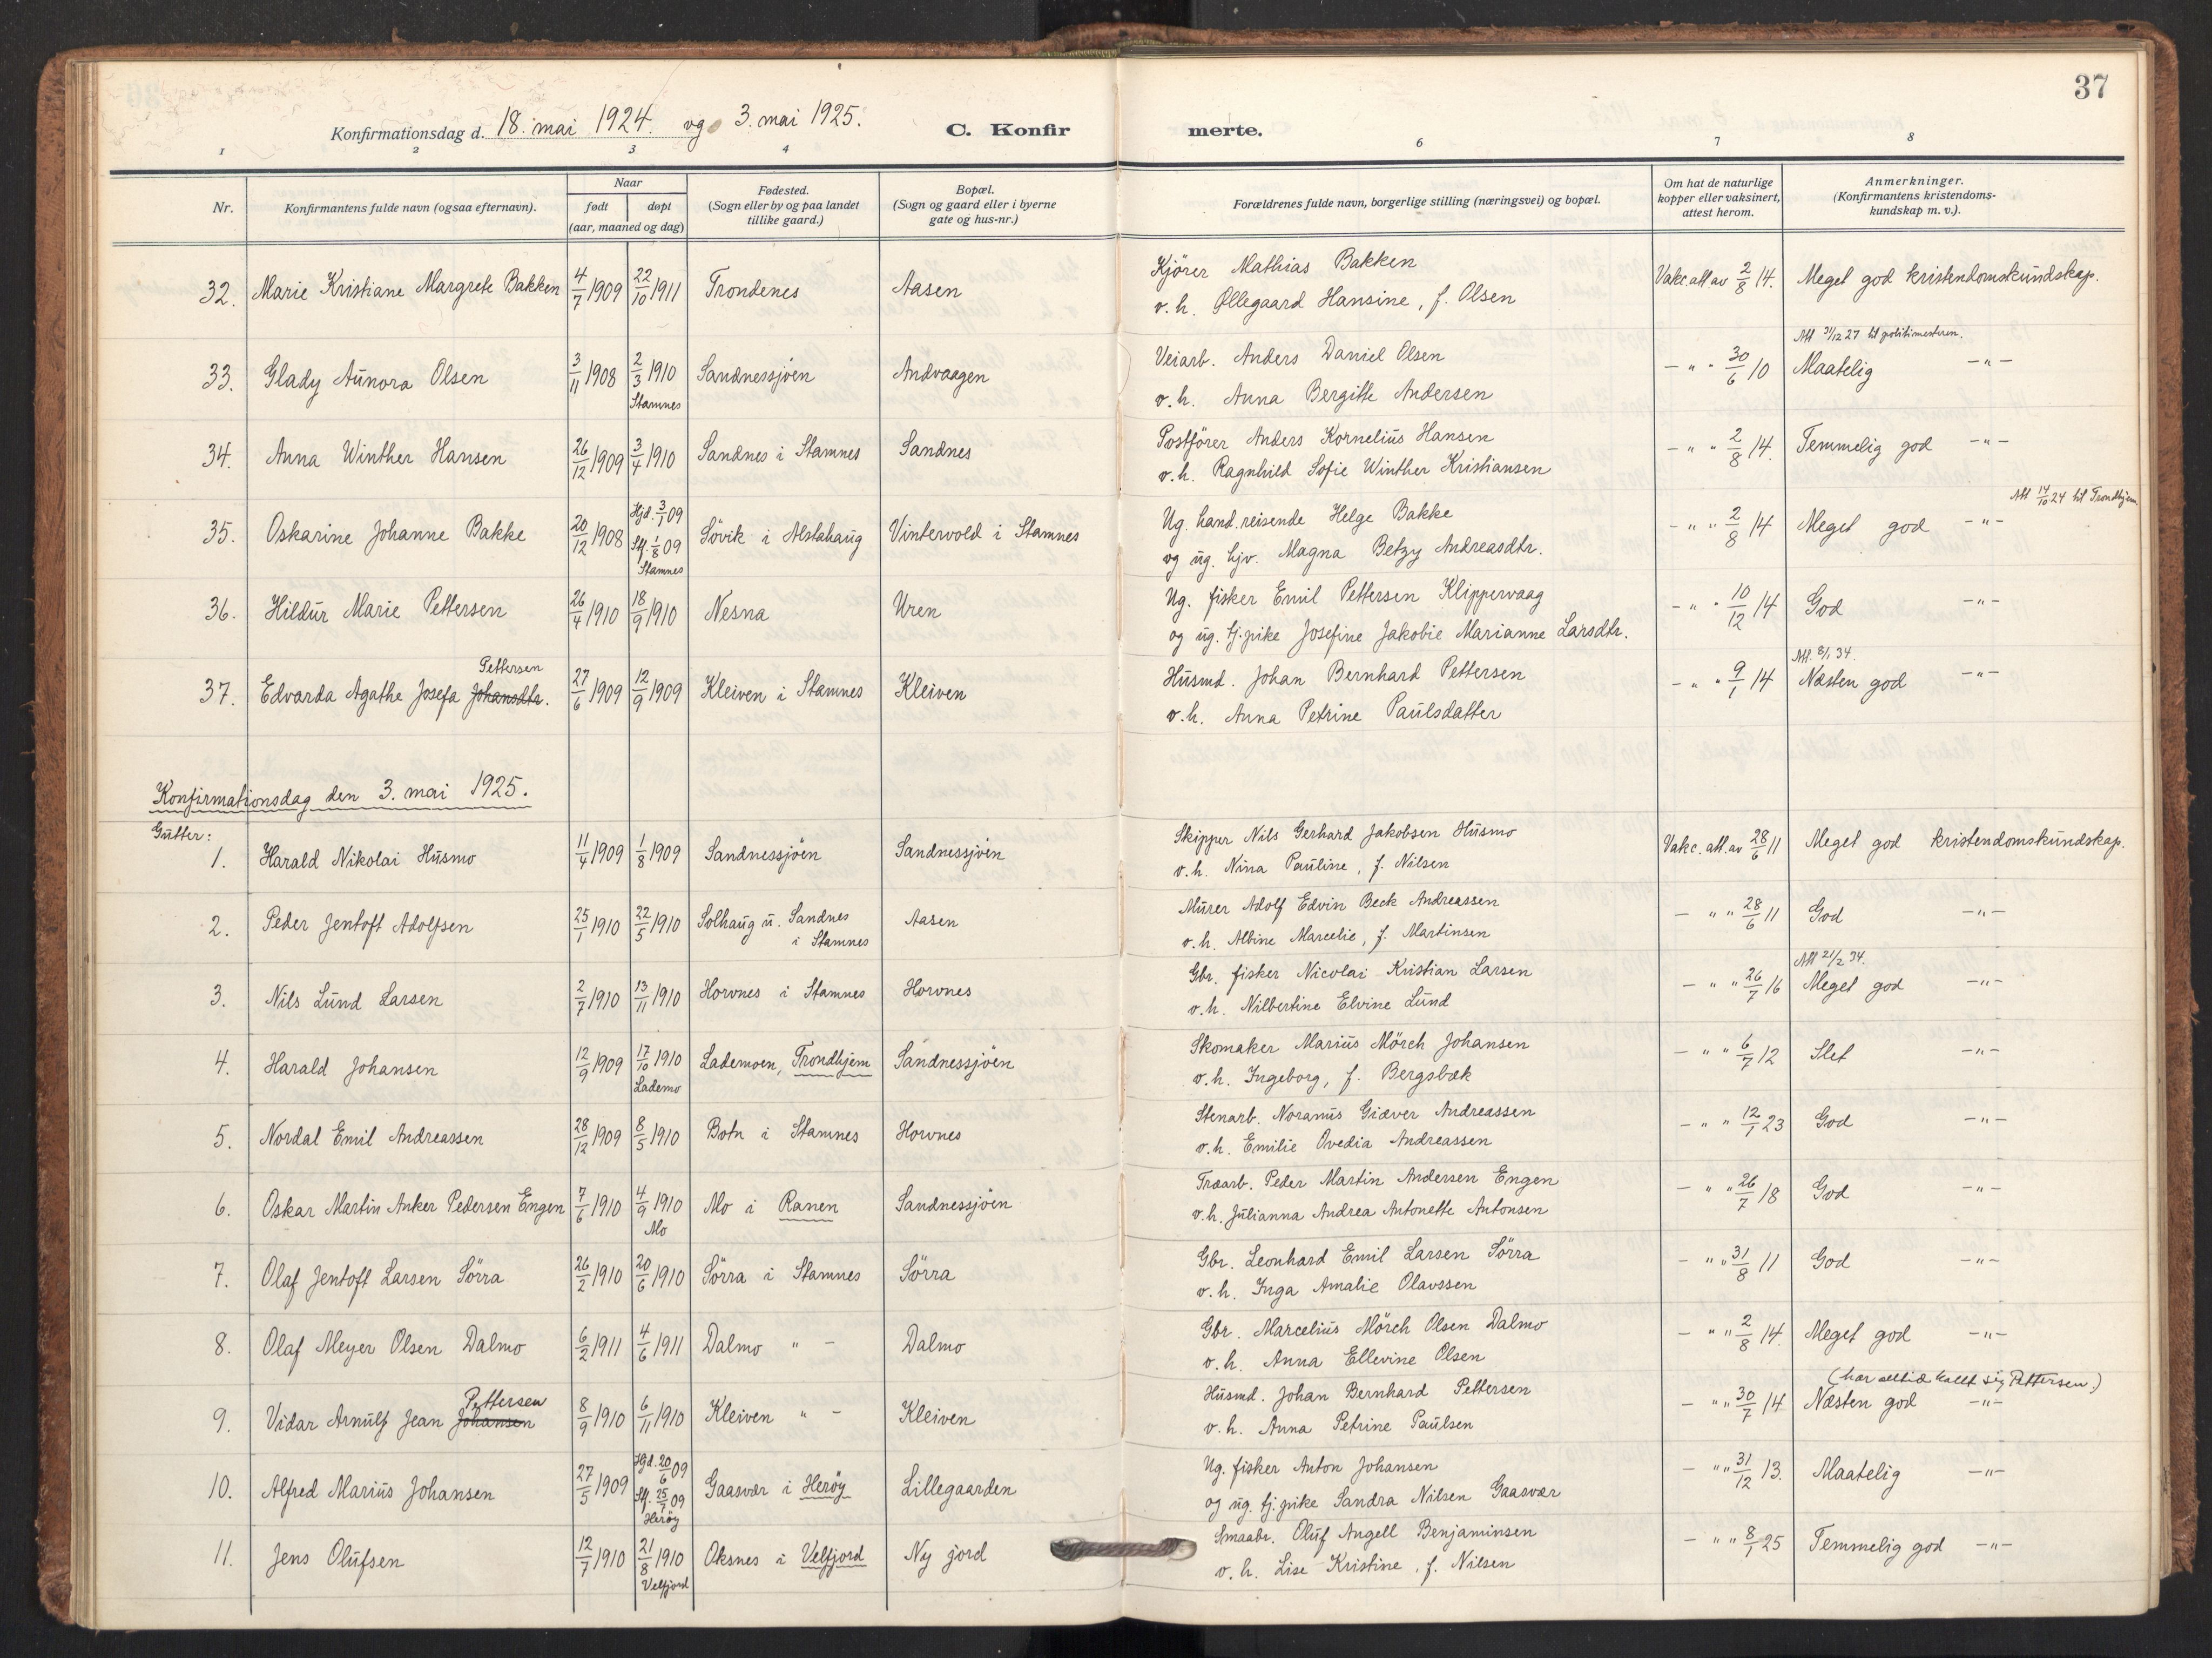 37
Konfirmationsdag d. 18. mai 1924. og 3. mai 1925. C. Konfir merte.
1 2 3 4 6 7 8
Nr. Konfirmantens fulde navn (ogsaa efternavn). Naar født døpt (aar, maaned og dag) Fødested. (Sogn eller by og paa landet tillike gaard.) Bopæl. (Sogn og gaard eller i byerne gate og hus-nr.) Forældrenes fulde navn, borgerlige stilling (næringsvei) og bopæl. Om hat de naturlige kopper eller vaksinert, attest herom. Anmerkninger. (Konfirmantens kristendoms-kundskap m. v.).
32. Marie Kristiane Margrete Bakken 4/7 1909 22/10 1911 Trondenes Aasen Kjörer Mathias Bakken Vakc. att av 2/8 14. Meget god kristendomskundskap.
v. h. Øllegaard Hansine, f. Olsen
Att 31/12 27 til politimesteren.
33. Glady Aunora Olsen 3/11 1908 2/3 1910 Sandnessjöen Andvaagen Veiarb. Anders Daniel Olsen - " " 30/6 10 Maatelig -"-
Stamnes v. h. Anna Bergitte Andersen
34. Anna Winther Hansen 26/12 1909 3/4 1910 Sandnes i Stamnes Sandnes Postförer Anders Kornelius Hansen - " " 2/8 14. Temmelig god -"-
v. h. Ragnhild Sofie Winther Kristiansen
Att 14/10 24 til Trondhjem
35. Oskarine Johanne Bakke 20/12 1908 Hjd. 3/1 09 Stf. 1/8 09 Stamnes Sövik i Alstahaug Vintervold i Stamnes Ug. hand.reisende Helge Bakke - " " 2/8 14 Meget god -"-
og ug. hjv. Magna Betzy Andreasdtr.
36. Hildur Marie Pettersen 26/4 1910 18/9 1910 Nesna Uren Ug. fisker Emil Pettersen Klippervaag - " " 10/12 14 God -"-
og ug. tj.pike Josefine Jakobie Marianne Larsdtr.
Pettersen Att. 8/1 34.
37. Edvarda Agathe Josefa Johansdtr. 27/6 1909 12/9 1909 Kleiven i Stamnes Kleiven Husmd. Johan Bernhard Pettersen - " " 9/1 14 Næsten god -"-
v. h. Anna Petrine Paulsdatter
Konfirmationsdag den 3. mai 1925.
Gutter:
1. Harald Nikolai Husmo 11/4 1909 1/8 1909 Sandnessjöen Sandnessjöen Skipper Nils Gerhard Jakobsen Husmo Vakc. att. av 28/6 11 Meget god kristendomskundskap.
v. h. Nina Pauline, f. Nilsen
2. Peder Jentoft Adolfsen 25/1 1910 22/5 1910 Solhaug u. Sandnes i Stamnes Aasen Murer Adolf Edvin Beck Andreassen - " " 28/6 11 God -"-
v. h. Albine Marcelie, f. Martinsen
Att 21/2 34.
3. Nils Lund Larsen 2/7 1910 13/11 1910 Horvnes i Stamnes Horvnes Gbr. fisker Nicolai Kristian Larsen - " " 26/7 16 Meget god -"-
v. h. Nilbertine Elvine Lund
4. Harald Johansen 12/9 1909 17/10 1910 Lademo Lademoen, Trondhjem Sandnessjöen Skomaker Marius Mörch Johansen - " " 6/7 12 Slet -"-
v. h. Ingeborg, f. Bergsbæk
5. Nordal Emil Andreassen 28/12 1909 8/5 1910 Botn i Stamnes Horvnes Stenarb. Noranus Giæver Andreassen - " " 12/1 23 God -"-
v. h. Emilie Ovedia Andreassen
6. Oskar Martin Anker Pedersen Engen 7/6 1910 4/9 1910 Mo Mo i Ranen Sandnessjöen Træarb. Peder Martin Andersen Engen - " " 26/7 18 God -"-
v. h. Julianna Andrea Antonette Antonsen
7. Olaf Jentoft Larsen Sörra 26/2 1910 20/6 1910 Sörra i Stamnes Sörra Gbr. Leonhard Emil Larsen Sörra - " " 31/8 11 God -"-
v. h. Inga Amalie Olavssen
8. Olaf Meyer Olsen Dalmo 6/2 1911 4/6 1911 Dalmo " - Dalmo Gbr. Marcelius Mörch Olsen Dalmo - " " 2/8 14. Meget god -"-
v. h. Anna Ellevine Olsen
Pettersen (har altid kallt sig Pettersen.)
9. Vidar Arnulf Jean Johansen 8/9 1910 6/11 1910 Kleiven " - Kleiven Husmd. Johan Bernhard Pettersen - " " 30/7 14. Næsten god -"-
v. h. Anna Petrine Paulsen
10. Alfred Marius Johansen 27/5 1909 Hjd. 20/6 09 Stf. 25/7 09 Heröy Gaasvær i Heröy Lillegaarden Ug. fisker Anton Johansen - " " 31/12 13. Maatelig -"-
og ug. tj. pike Sandra Nilsen Gaasvær
11. Jens Olufsen 12/7 1910 21/8 1910 Velfjord Oksnes i Velfjord Ny jord Smaabr. Oluf Angell Benjaminsen - " " 8/1 25 Temmelig god -"-
v. h. Lise Kristine, f. Nilsen